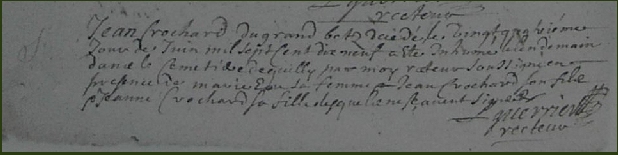 recteur
Jean Crochard du grand bots décédé le vingt quatriéme
Jour de Juin mil sept cent dix neuf a été Inhumé le lendemain
dans le Cemetiére de quilly par moy recteur soussigné en
presence de marie sa femme Jean Crochard son fils
Jeanne Crochard sa fille lesquels ne sçavent signer
Lguerrier
recteur